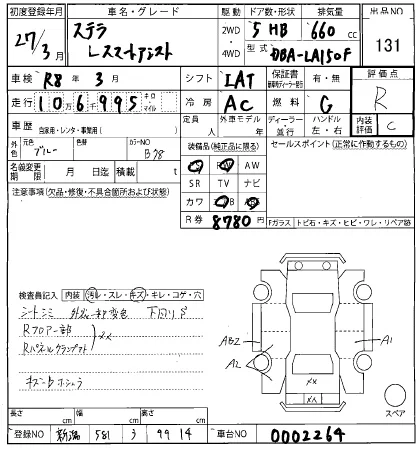 初度登録年月 車名・グレード 駆動 ドア数・形状 排気量 出品NO
27/3月 ステラ 2WD・4WD 5 HB 660 cc 131
レスマートアシスト 型式 DBA-LA150F
車検 R8年 3月 シフト IAT 保証書 有・無 評価点
走行 106995 キロ・マイル 冷房 AC 燃料 G R
車歴 自家用・レンタ・事業用( ) 定員 人 外車モデル 年 ディーラー 並行 ハンドル 左・右 内装評価 C
外色 元色 ブルー 色替 カラーNO B78 装備品(純正品に限る) セールスポイント(正常に作動するもの)
名義変更期限 月 日迄 積載 t SR TV ナビ AW
注意事項(欠品・修復・不具合箇所および状態) カワ
R券 8780円 Fガラス トビ石・キズ・ヒビ・ワレ・リペア跡
検査員記入 内装 汚レ・スレ・キズ・キレ・コゲ・穴
シートシミ 外装一部変色 下回りS
Rフロアー部
Rパネルクランプアト
XX
AB2 A2 A1
XX
XX
スペア
長さ cm 幅 cm 高さ cm
登録NO 新潟 581 3 9914 車台NO 0002264